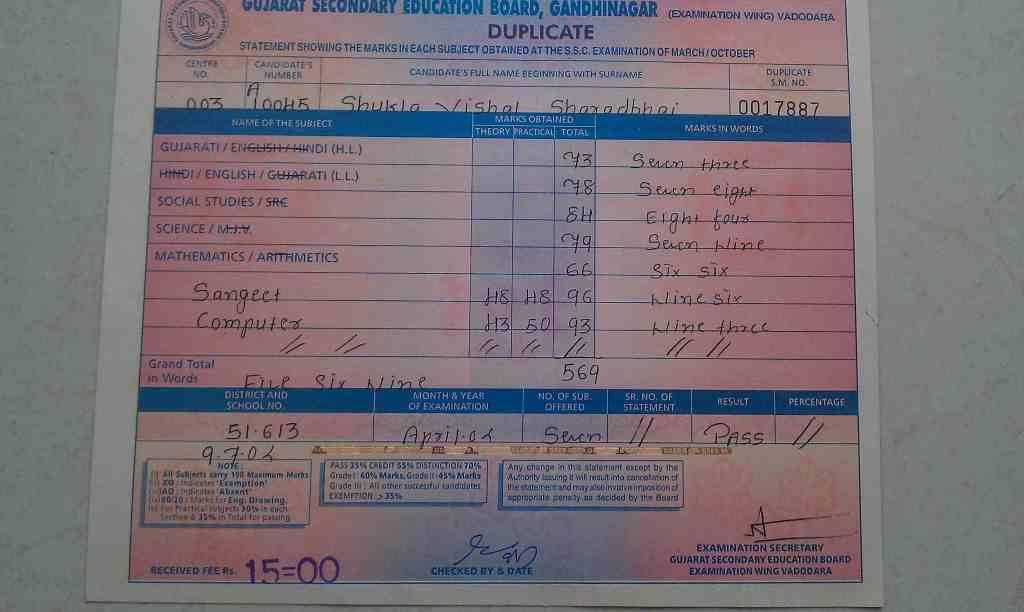 GUJARAT SECONDARY EDUCATION BOARD, GANDHINAGAR (EXAMINATION WING) VADODARA
DUPLICATE
STATEMENT SHOWING THE MARKS IN EACH SUBJECT OBTAINED AT THE S.S.C. EXAMINATION OF MARCH / OCTOBER
CENTRE NO. CANDIDATE'S NUMBER CANDIDATE'S FULL NAME BEGINNING WITH SURNAME DUPLICATE S.M. NO.
003 A 10045 Shukla Vishal Sharadbhai 0017887
NAME OF THE SUBJECT MARKS OBTAINED MARKS IN WORDS
THEORY PRACTICAL TOTAL
GUJARATI / ENGLISH / HINDI (H.L.) 73 Seven three
HINDI / ENGLISH / GUJARATI (L.L.) 78 Seven eight
SOCIAL STUDIES / SRC 84 Eight four
SCIENCE / M.J.V. 79 Seven Nine
MATHEMATICS / ARITHMETICS 66 Six six
Sangeet 48 48 96 Nine six
Computer 43 50 93 Nine three
// // // // // // //
Grand Total in Words Five Six Nine 569
DISTRICT AND SCHOOL NO. MONTH & YEAR OF EXAMINATION NO. OF SUB. OFFERED SR. NO. OF STATEMENT RESULT PERCENTAGE
51.613 April-02 Seven // PASS //
9.7.02
NOTE :
(i) All Subjects carry 100 Maximum Marks
(ii) XO : Indicates 'Exemption'
(iii) AO : Indicates 'Absent'
(iv) 80/20 : Marks for Eng. Drawing.
(v) For Practical Subjects 30% in each
Section & 35% in Total for passing
PASS 35% CREDIT 55% DISTINCTION 70%
Grade I : 60% Marks, Grade II : 45% Marks
Grade III : All other successful candidates
EXEMPTION > 35%
Any change in this statement except by the
Authority issuing it will result into cancellation of
the statement and may also involve imposition of
appropriate penalty as decided by the Board
RECEIVED FEE Rs. 15=00
CHECKED BY & DATE
EXAMINATION SECRETARY
GUJARAT SECONDARY EDUCATION BOARD
EXAMINATION WING VADODARA